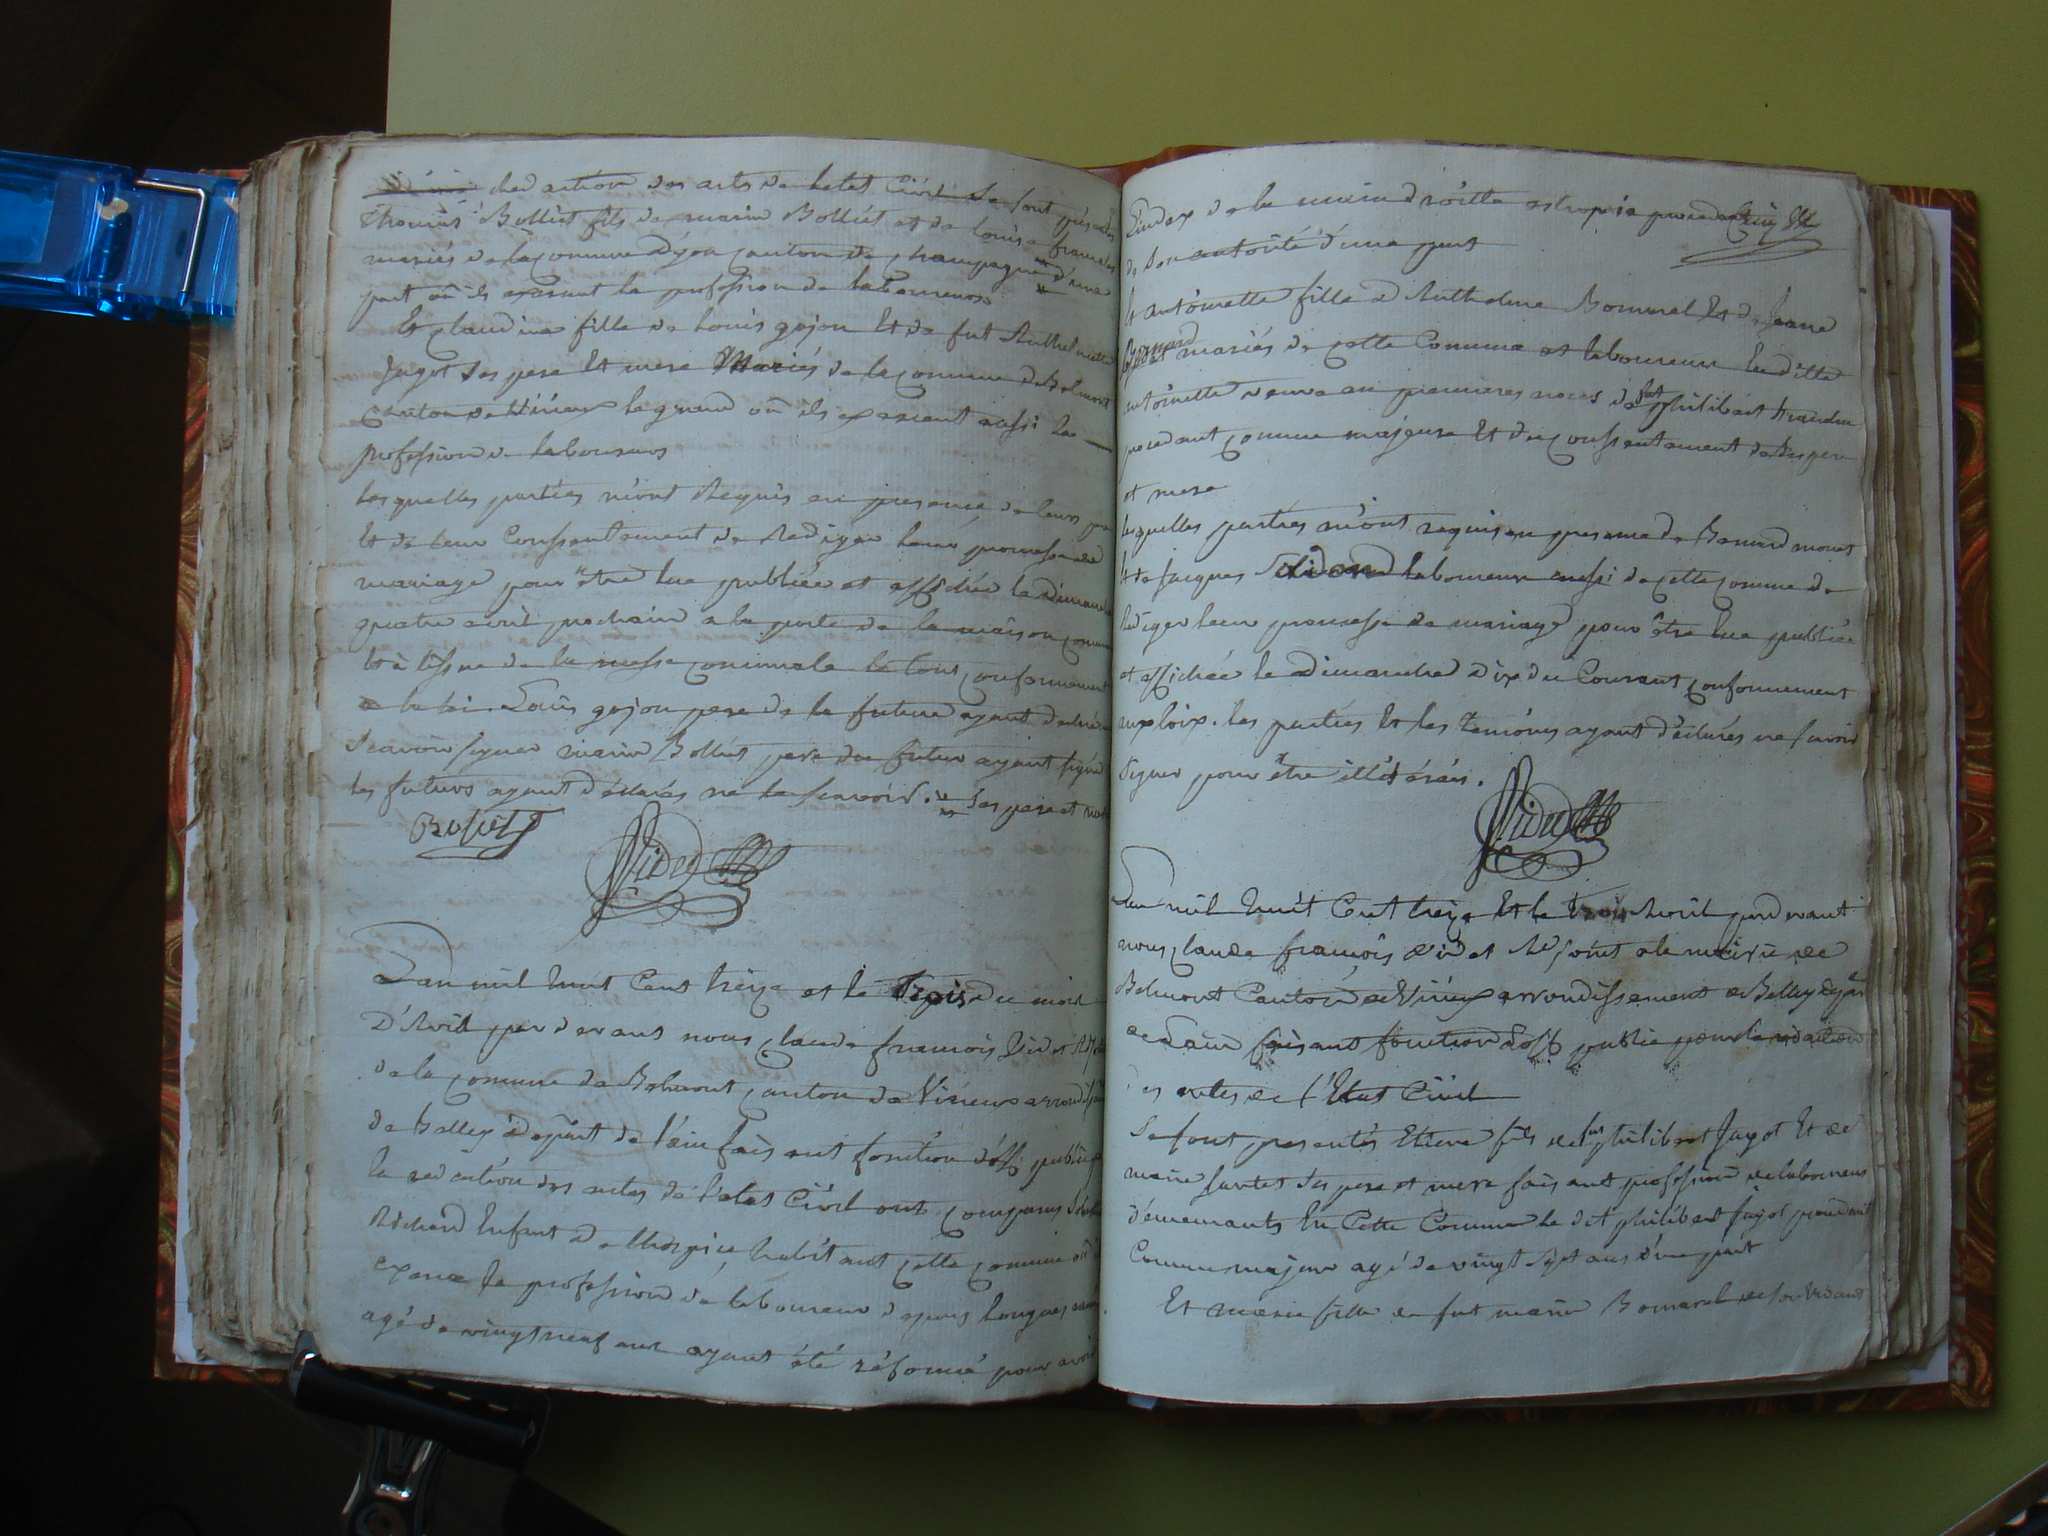 rédaction des actes de letat Civil se sont présentés
Thomas Bolliet fils de marin Bolliet et de louise françoise
mariés de la commune d'yon canton de champagne d'une
part où ils exersent la profession de laboureurs
Et claudine fille de Louis gojon Et de fut Anthelmette
Jugot ses pere Et mere Mariés de la commune de Belmont
canton de Virieux le grand où ils exersent aussi la
profession de laboureurs
les quelles parties m'ont Requis en presence de leurs
Et de leur Conssentement de Rediger leur promesse de
mariage pour être lue publiée et affichée le Dimanche
quatre avril prochain a la porte de la maison
Et à lissue de la messe le tout conformément
a la loi. Louis gojon pere de la future ayant declaré
Scavoir signer marin Bolliet pere du futur ayant signé
les futurs ayant déclarés ne le scavoir. ses pere et
Boliet
Videt
Lan mil huit Cent treize et le Trois du mois
D'Avril par devant nous claude françois Videt Adj
de la commune de Belmont canton de Virieux arrond
de Belley depart de l'ain faisant fonction d'off public
la redaction des actes de l'etat Civil ont comparus
Richard Enfant de Lhospice habitant cette commune où
exerce la profession de laboureur depuis longues
agé de vingt neuf ans ayant été réformé pour avoir
Lindex de la main droitte estropié procedant
de son autorité d'une part
Et antoinette fille d'Anthelme Bomurel Et de Jeane
mariés de cette Commune et laboureurs la ditte
antoinette veuve en premieres noces de fut philibert
procedant comme majeure Et du conssentement de ses pere
et mere
lesquelles parties m'ont requis en presence de Bernard
Et de Jacques laboureurs aussi de cette comune de
Rediger leur promesse de mariage pour être lue publiée
et affichée le dimanche dix du Courant conformement
aux loix. les parties Et les temoins ayant déclarés ne savoir
signer pour être illitérés.
Videt
Lan mil huit Cent treize Et le trois Avril par devant
nous claude françois videt Adjoint a la mairie de
Belmont Canton de Virieux arrondissement de Belley depar
de Lain faisant fonction d'off public pour la redaction
des actes de l'Etat Civil
Se sont presentés Etiene fils de fut philibert Jugot Et de
marie ses pere et mere faisant profession de laboureurs
demeurants En Cette Commune le dit philibert Jugot procedant
Comme majeur agé de vingt sept ans d'une part
Et marie fille de fut marin Bomarel de son vivant